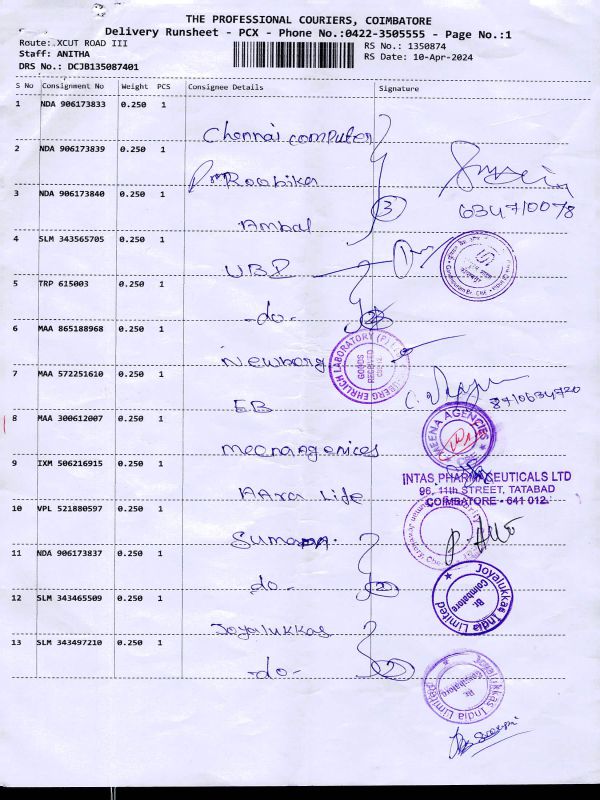 THE PROFESSIONAL COURIERS, COIMBATORE
Delivery Runsheet - PCX - Phone No.:0422-3505555 - Page No.:1
Route:.XCUT ROAD III
RS No.: 1350874
Staff: ANITHA
RS Date: 10-Apr-2024
DRS No.: DCJB135087401
S No Consignment No Weight PCS Consignee Details Signature
1 NDA 906173833 0.250 1 Chennai computer
2 NDA 906173839 0.250 1 Roobika
3 NDA 906173840 0.250 1 Ambal 3 634710078
4 SLM 343565705 0.250 1 UBI
5 TRP 615003 0.250 1 -do-
6 MAA 865188968 0.250 1 Newberg
GOODS RECEIVED
7 MAA 572251610 0.250 1 EB
8 MAA 300612007 0.250 1 Meenaagenices
MEENA AGENCIES
9 IXM 506216915 0.250 1 Life
INTAS PHARMACEUTICALS LTD
96, 11th STREET, TATABAD
COIMBATORE - 641 012.
10 VPL 521880597 0.250 1
11 NDA 906173837 0.250 1 do - 2
Joyalukkas India Limited
Br. Coimbatore
12 SLM 343465509 0.250 1 Joyalukkas
13 SLM 343497210 0.250 1 -do- 2
Joyalukkas India Limited
Br. Coimbatore